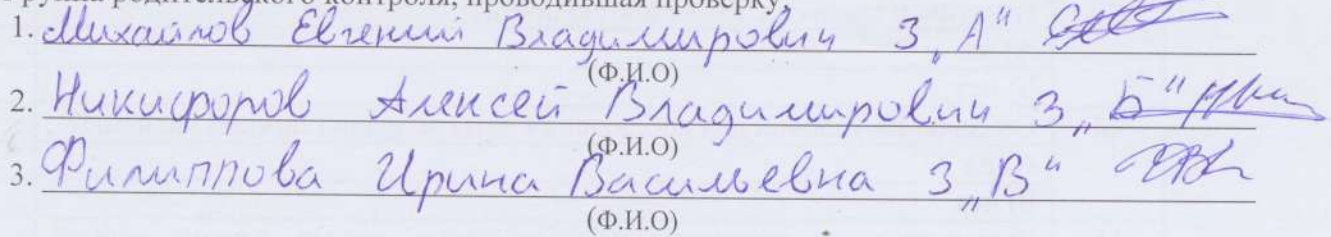 Группа родительского контроля, проводившая проверку:
1. Михайлов Евгений Владимирович 3 „А"
(Ф.И.О)
2. Никифоров Алексей Владимирович 3 „Б"
(Ф.И.О)
3. Филиппова Ирина Васильевна 3 „В"
(Ф.И.О)